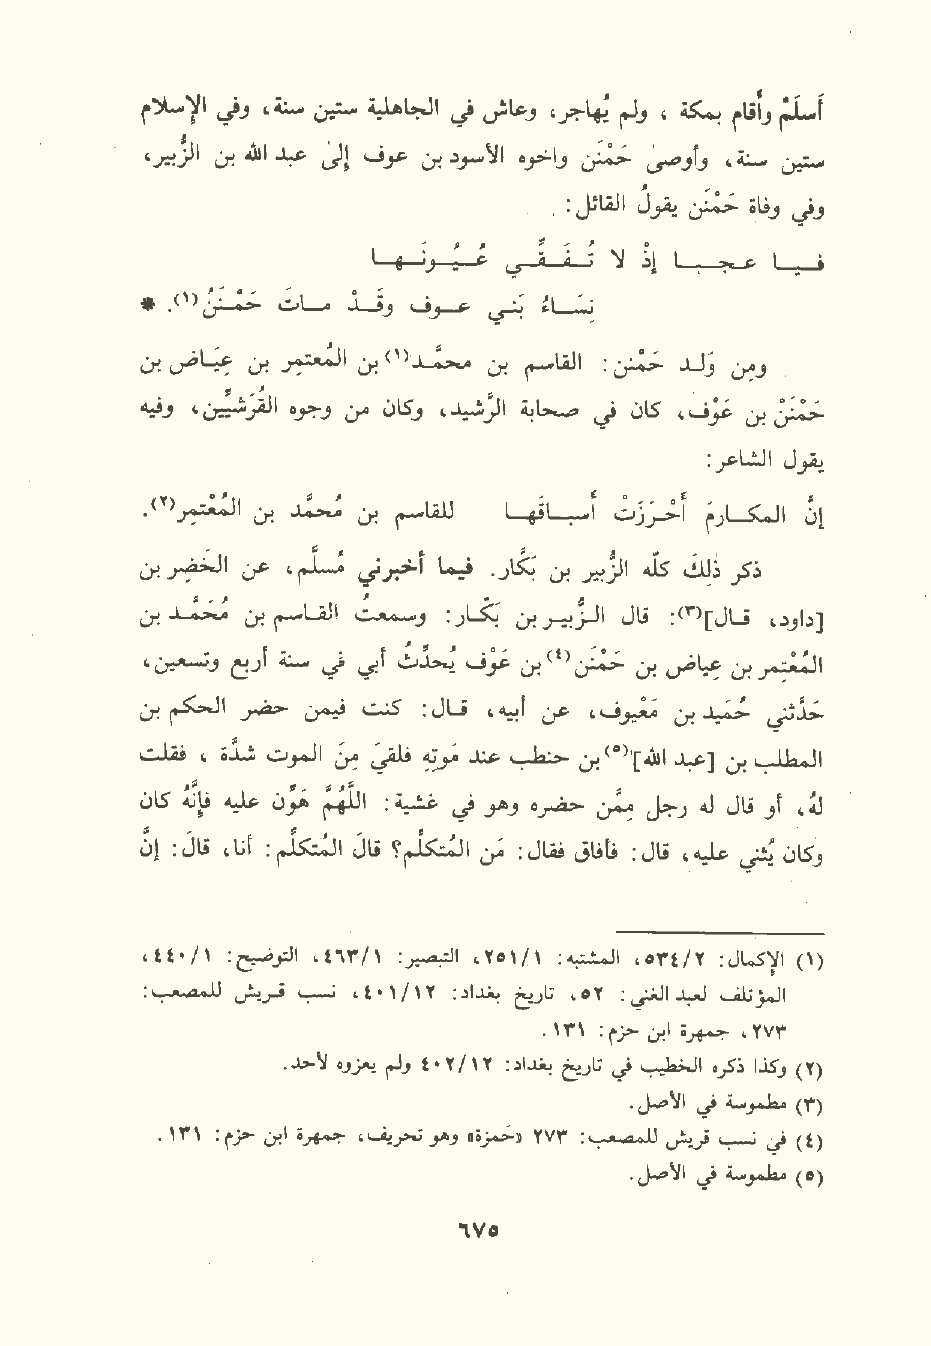 أَسلَمْ وأَقام بمكة ، ولم يُهاجر، وعاش في الجاهلية ستين سنة، وفي الإِسلام
ستين سنة، وأوصىٰ حَمْنَن وأخوه الأسود بن عوف إلىٰ عبد الله بن الزُّبير،
وفي وفاة حَمْنَن يقولُ القائل:
فـيـا عـجـبـا إذْ لا تُـفَـقِّـي عُـيُـونَـهـا
نِسَـاءُ بَنـي عـوف وقَـدْ مـاتَ حَمْـنَنُ(١). *
ومِن وَلَـد حَمْنن: القاسم بن محمَّـد(١) بن المُعتمِر بن عِيَاض بن
حَمْنَنْ بن عَوْف، كان في صحابة الرَّشيد، وكان من وجوه القُرَشيِّين، وفيه
يقول الشاعر:
إنْ المكـارمَ أَحْـرَزَتْ أسبـاقَهـا للقاسم بن مُحمَّد بن المُعْتمِر(٢).
ذكر ذلِكَ كلَّه الزُّبير بن بَكّار. فيما أخبرني مُسلَّم، عن الخَضِر بن
[داود، قـال](٣): قال الزُّبـيـر بن بَكَّـار: وسمعتُ القـاسم بن مُحَمَّـد بن
المُعْتمِر بن عياض بن حَمْنَن(٤) بن عَوْف يُحدِّثُ أبي في سنة أربع وتسعين،
حَدَّثني حُمَيد بن مَعْيوف، عن أبيه، قـال: كنت فيمن حضر الحكم بن
المطلب بن [عبد الله](٥) بن حنطب عند مَوتِهِ فلقي مِنَ الموت شدَّة ، فقلت
لهُ، أو قال له رجل مِمَّن حضره وهو في غشية: اللَّهُمَّ هَوِّن عليه فإنَّهُ كان
وكان يُثني عليه، قال: فأفاق فقال: مَن المُتكلِّم؟ قالَ المُتكلِّم: أنا، قالَ: إنَّ
(١) الإكمال: ٥٣٤/٢، المشتبه: ٢٥١/١، التبصير: ٤٦٣/١، التوضيح: ٤٤٠/١،
المؤتلف لعبد الغني: ٥٢، تاريخ بغداد: ٤٠١/١٢، نسب قريش للمصعب:
٢٧٣، جمهرة ابن حزم: ١٣١.
(٢) وكذا ذكره الخطيب في تاريخ بغداد: ٤٠٢/١٢ ولم يعزوه لأحد.
(٣) مطموسة في الأصل.
(٤) في نسب قريش للمصعب: ٢٧٣ «حَمزة» وهو تحريف، جمهرة ابن حزم: ١٣١.
(٥) مطموسة في الأصل.
٦٧٥